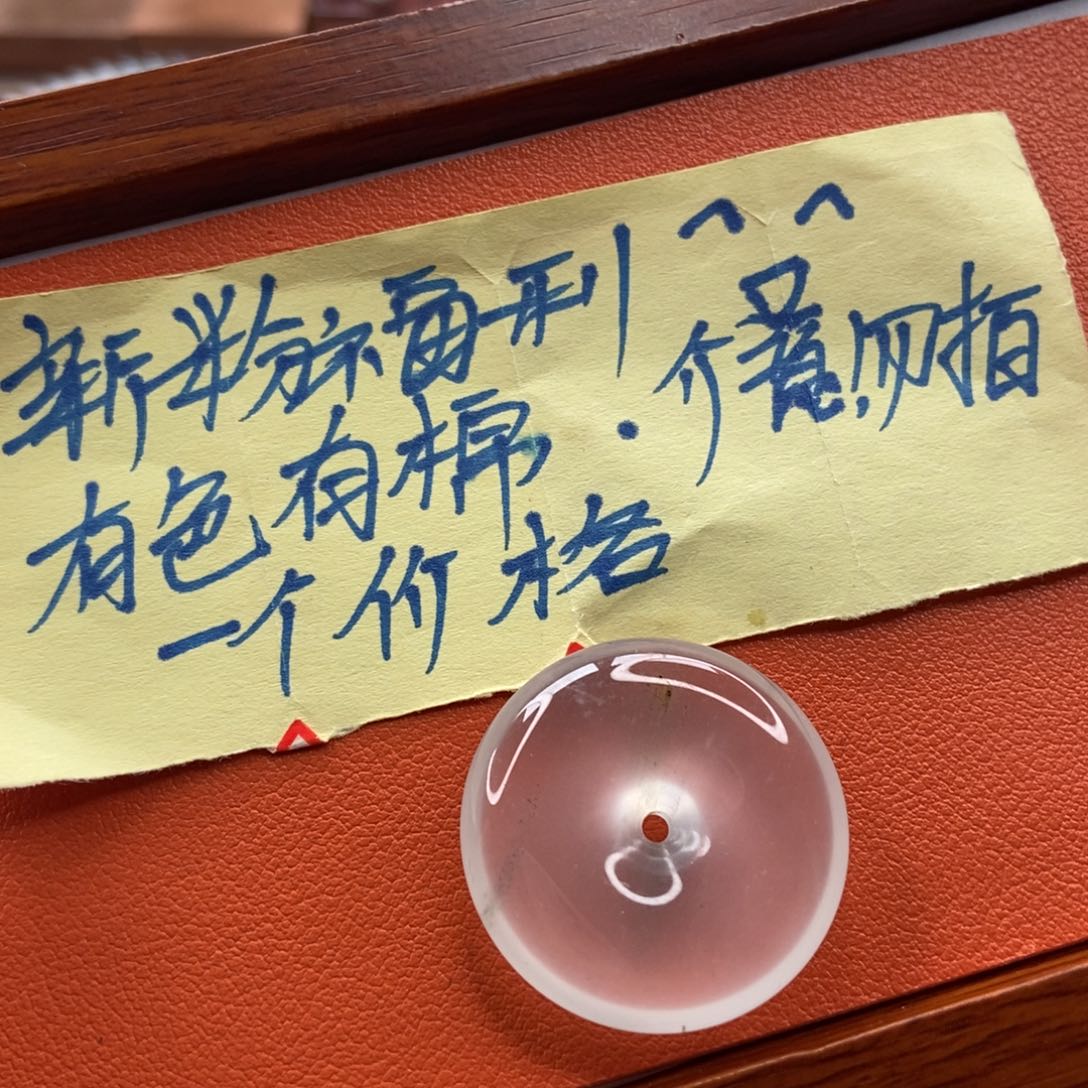 新粉福利^^
有色有棉.介意勿拍
一个价格